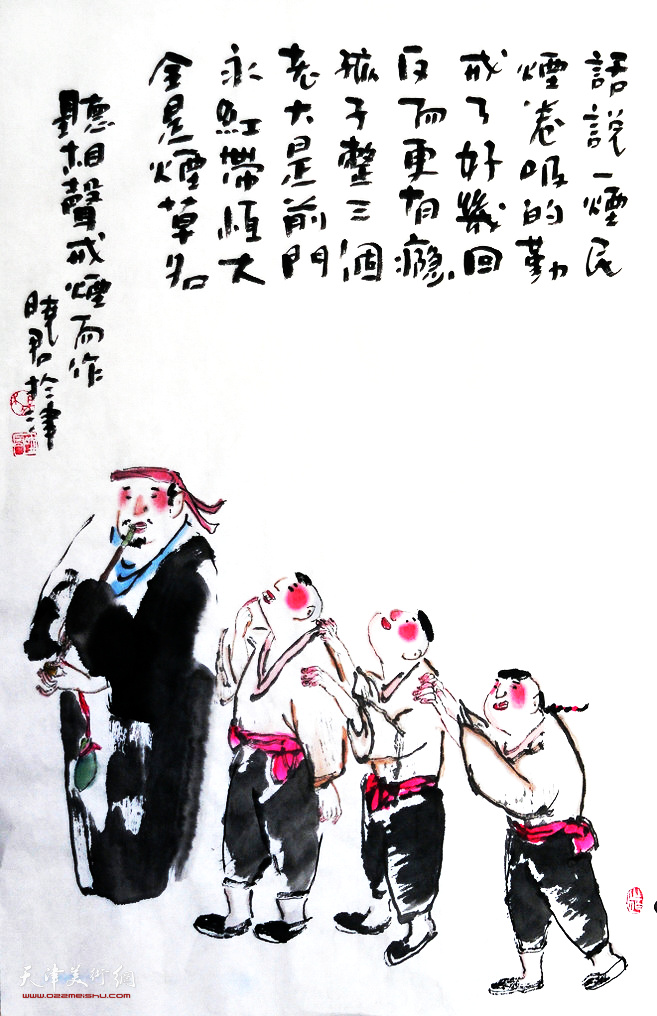 話說一煙民
煙卷吸的勤
戒了好幾回
反而更有瘾
孩子整三個
老大是前門
永紅帶恒大
全是煙草名
聽相聲戒煙而作
晓君於津
天津美術網
www.022meishu.com